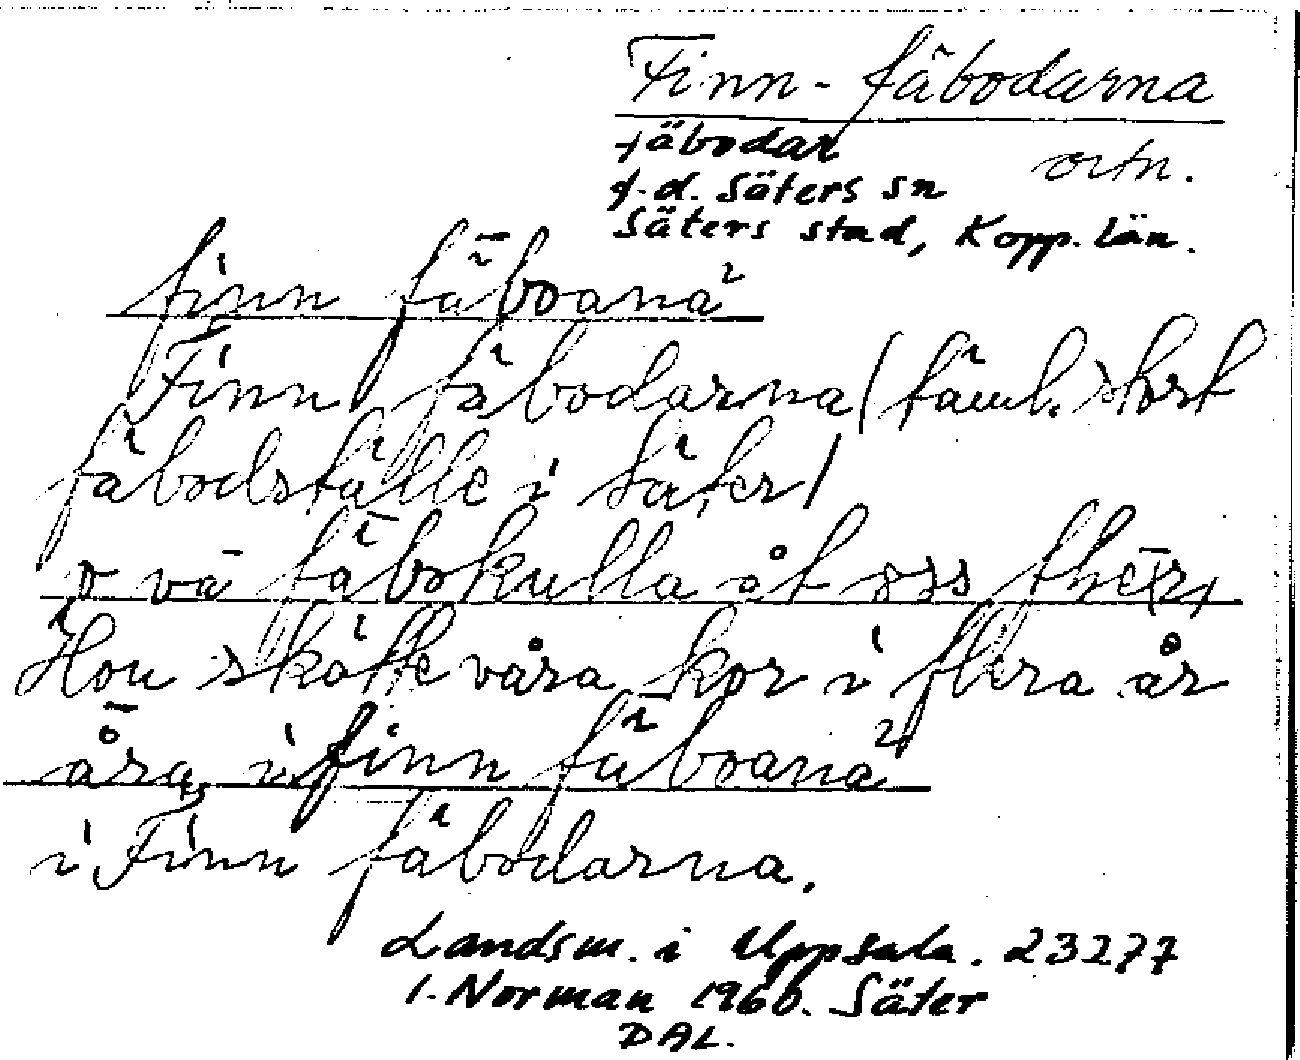 Finn-fäbodarna
fäbodar
ortn.
f.d. Säters sn
Säters stad, Kopp. län.
finn fäboana²
Finn fäbodarna (täml. stort
fäbodställe i Säter)
o va fäbokulla åt oss flier
Hon skötte våra kor i flera år
åra, i finn fäboana²
i Finn fäbodarna.
Landsm. i Uppsala. 23277
I. Norman 1960. Säter
DAL.